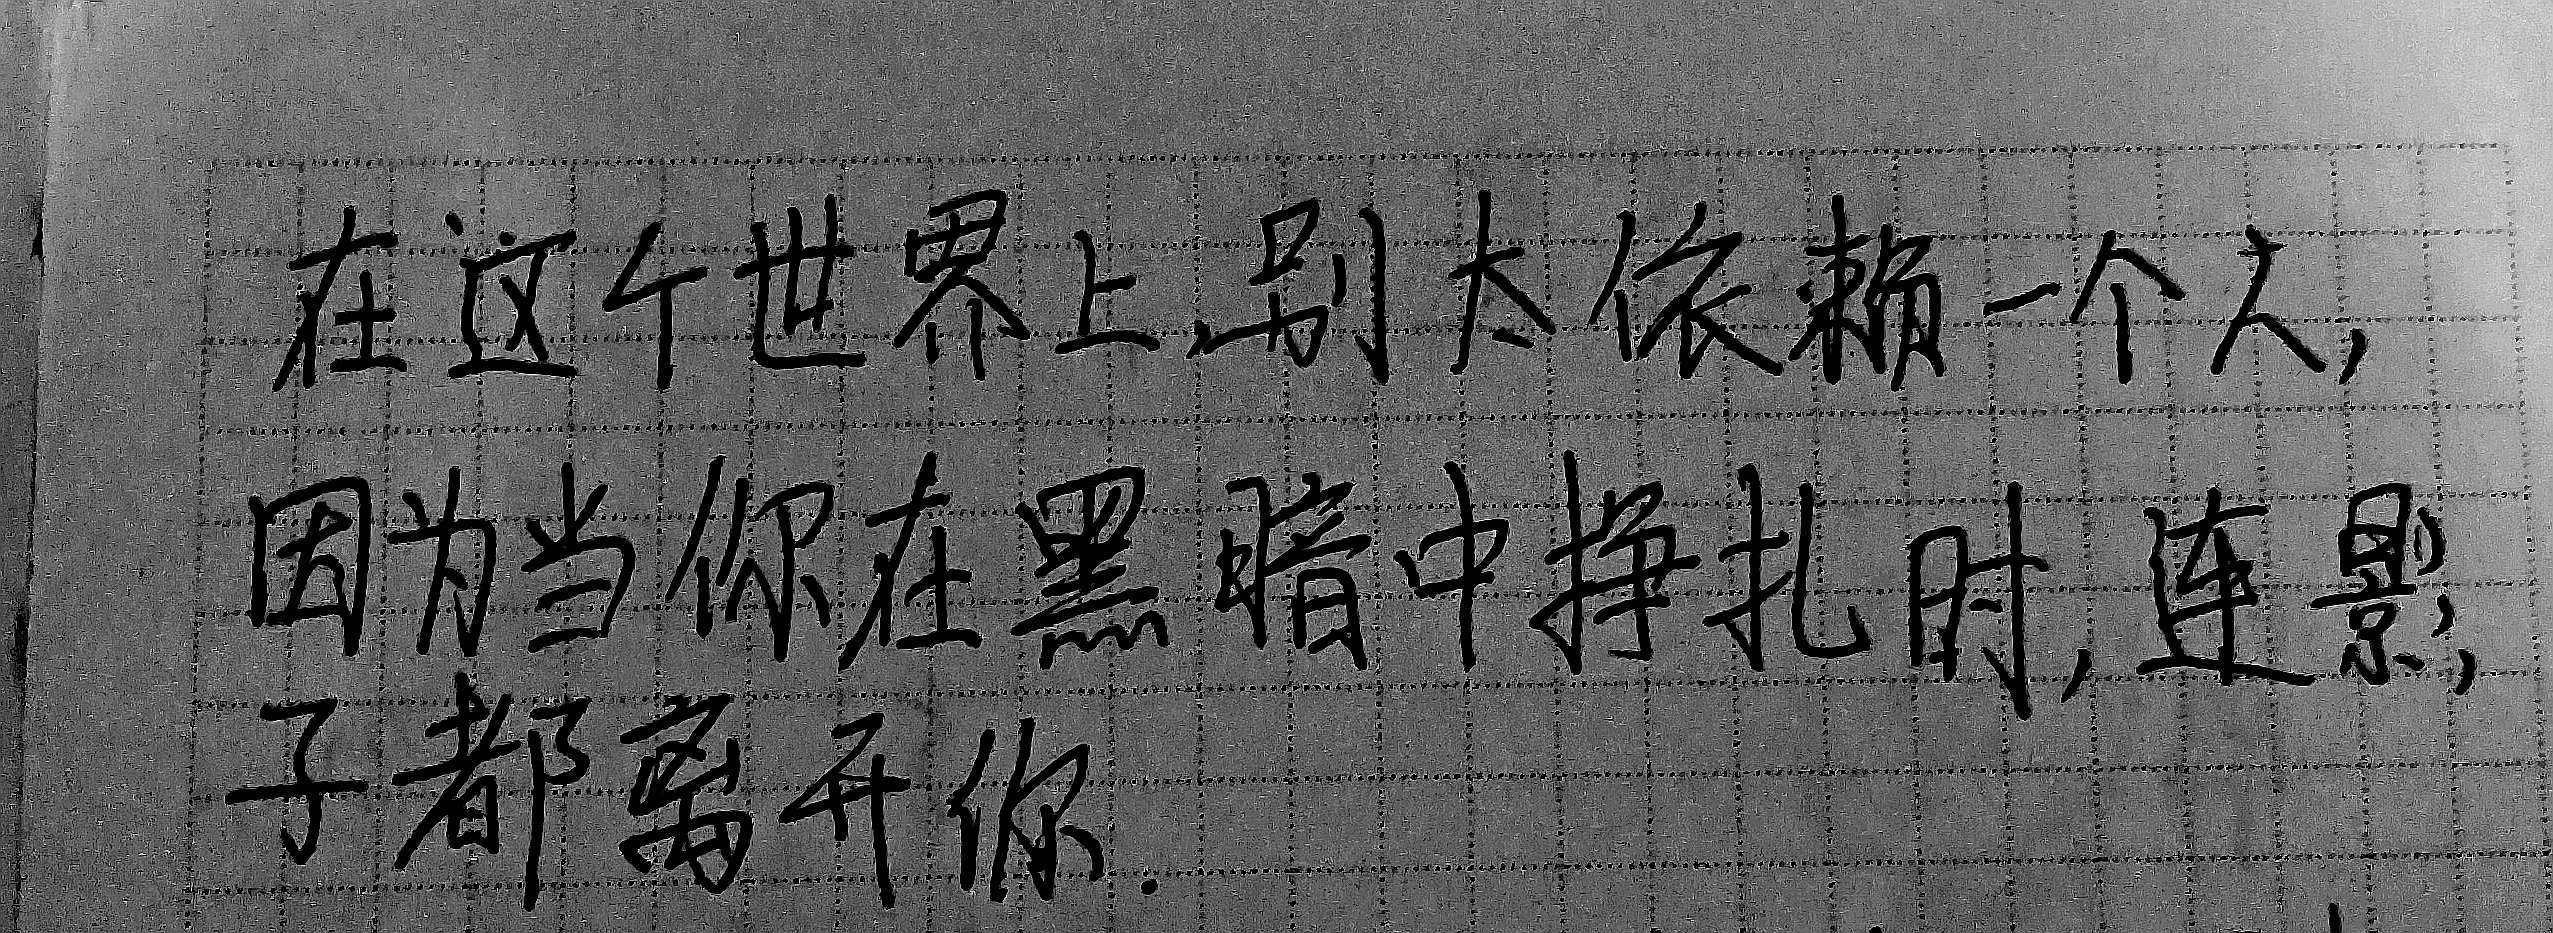 在这个世界上,别太依赖一个人,
因为当你在黑暗中挣扎时,连影
子都离开你.